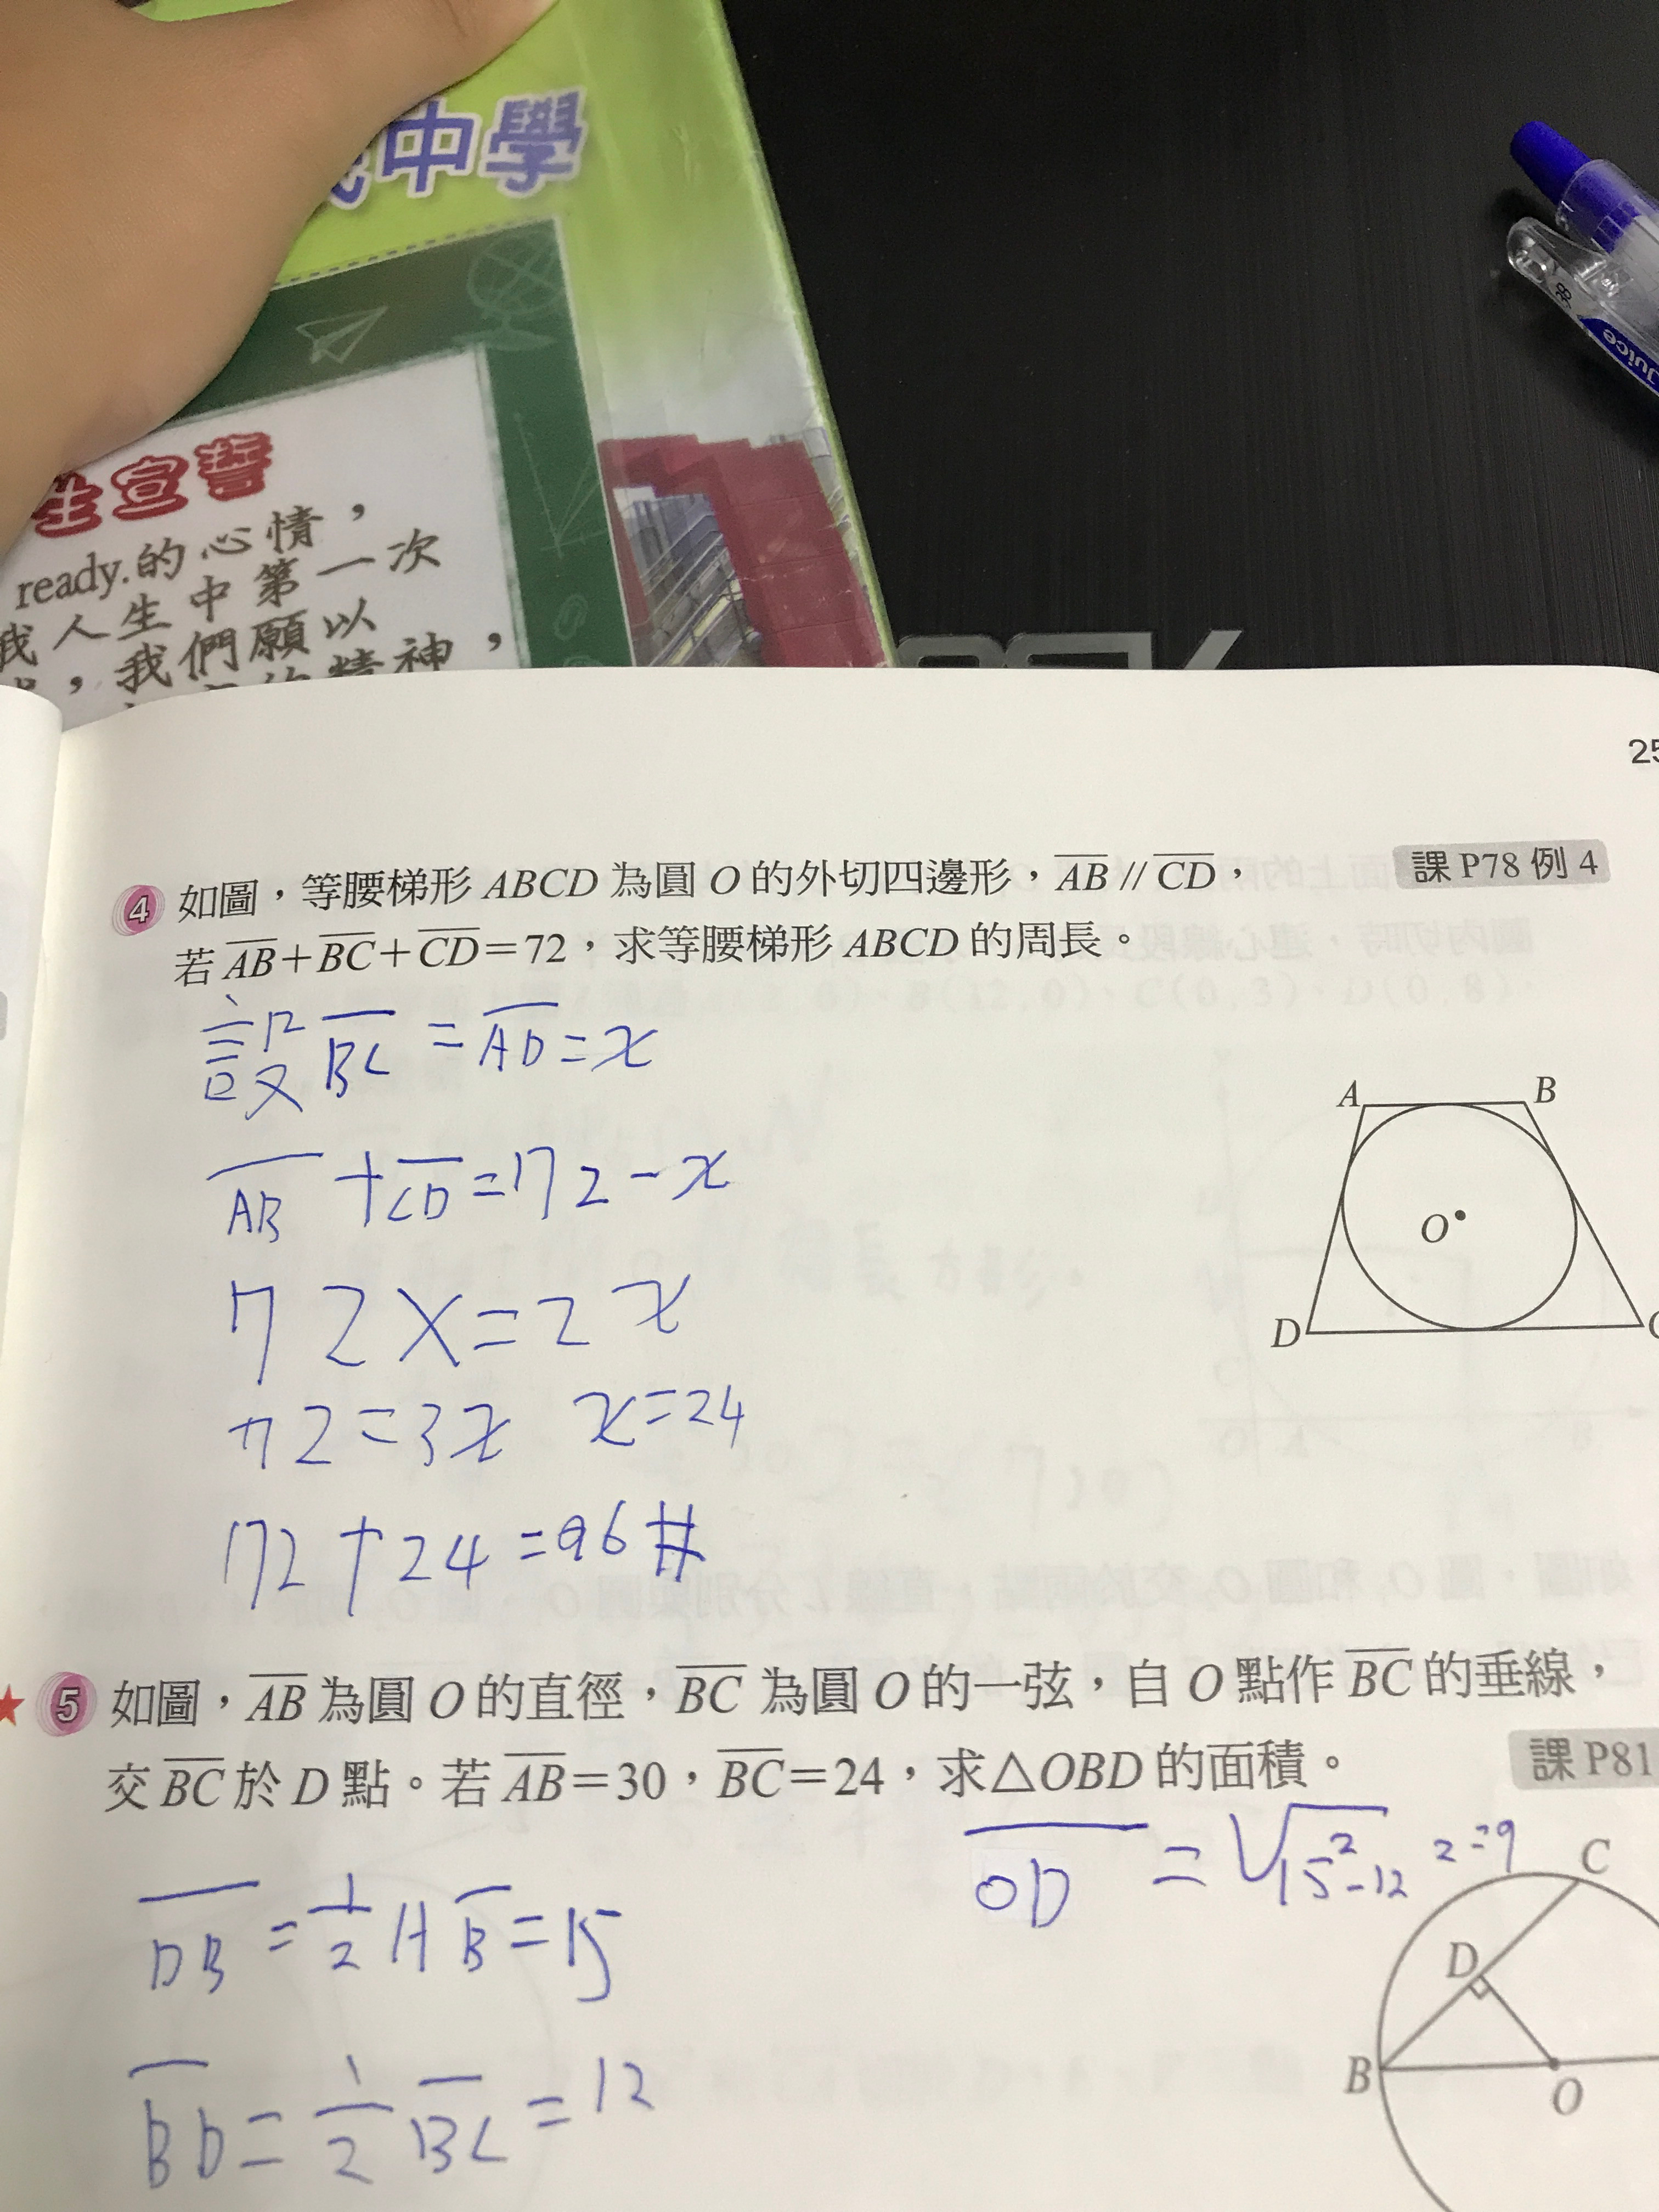 中學
生宣誓
ready.的心情，
我人生中第一次
，我們願以
精神，
25
4 如圖，等腰梯形 ABCD 為圓 O 的外切四邊形，AB // CD， 課 P78 例 4
若 AB+BC+CD=72，求等腰梯形 ABCD 的周長。
設 BC = AD = x
AB + CD = 72 - x
72 x = 2 x
72 = 3x x = 24
72 + 24 = 96 #
A B
O
D
★ 5 如圖，AB 為圓 O 的直徑，BC 為圓 O 的一弦，自 O 點作 BC 的垂線，
交 BC 於 D 點。若 AB=30，BC=24，求△OBD 的面積。 課 P81
OD = √15²-12 2 = 9
DB = 1/2 A B = 15
BD = 1/2 BC = 12
C
D
B O
Juice